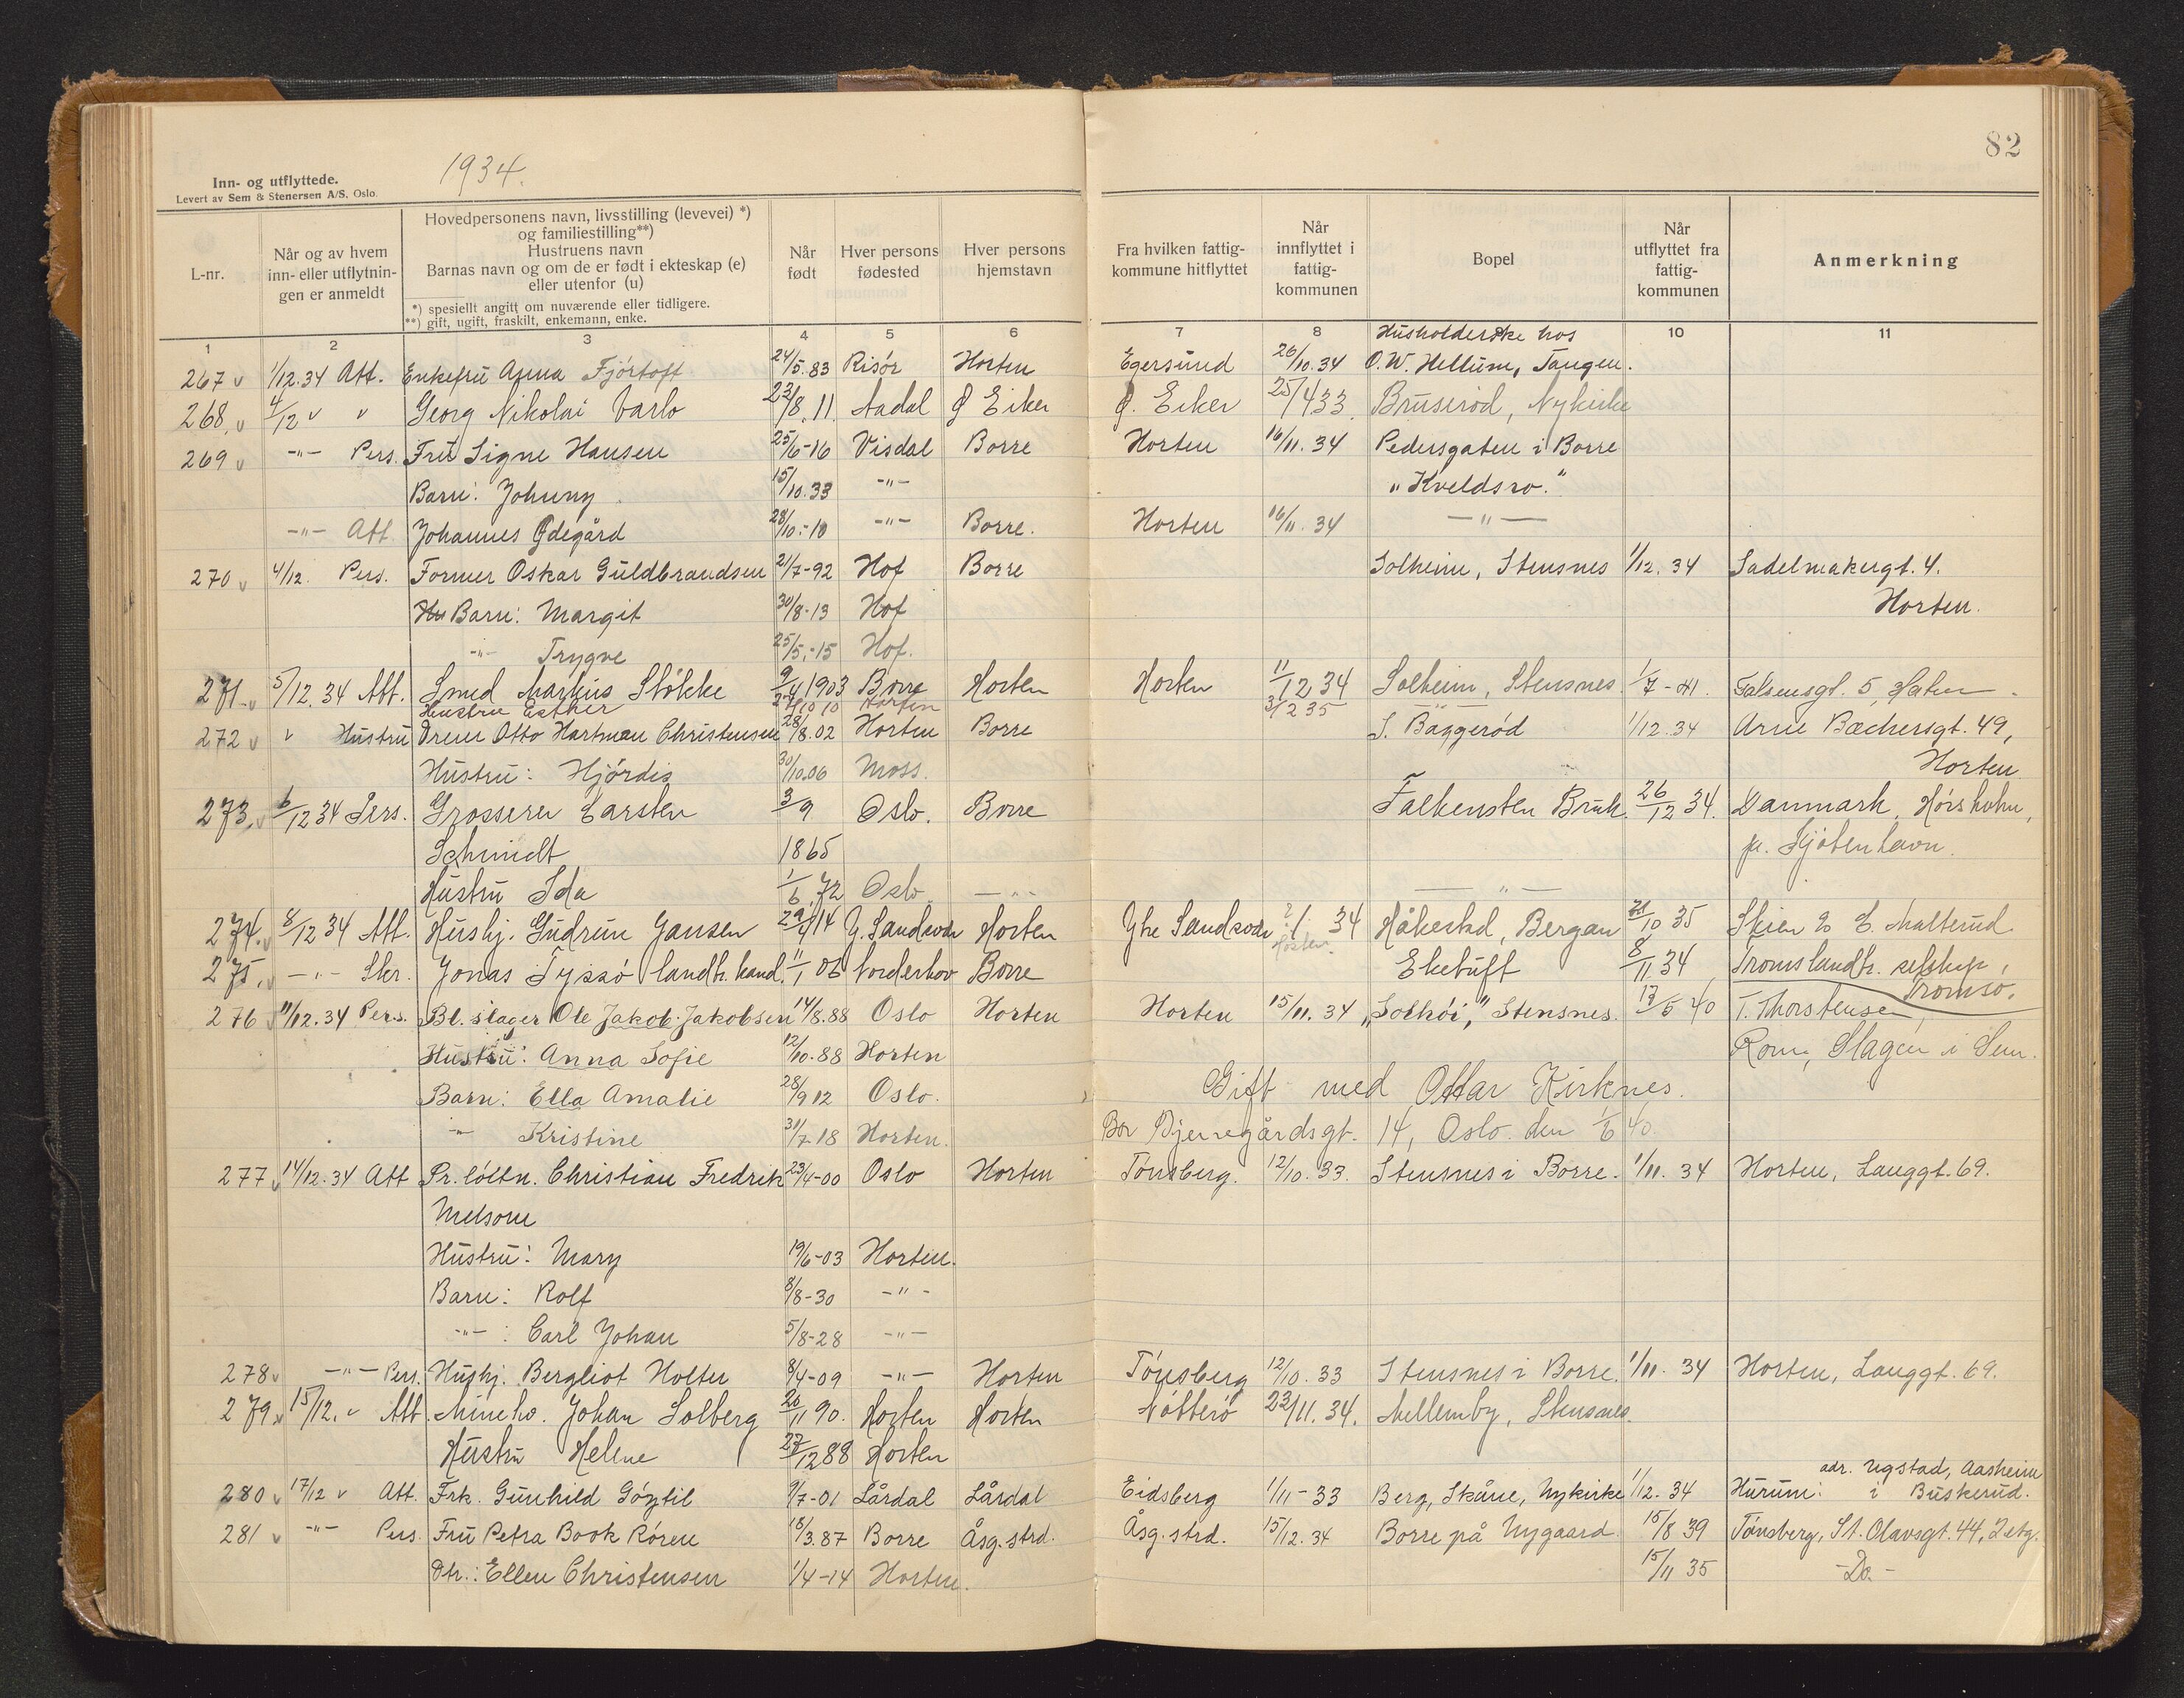 82
1934.
Inn- og utflyttede.
Levert av Sem & Stenersen A/S, Oslo.
L-nr.
Når og av hvem inn- eller utflytnin-gen er anmeldt
Hovedpersonens navn, livsstilling (levevei) *)
og familiestilling**)
Hustruens navn
Barnas navn og om de er født i ekteskap (e)
eller utenfor (u)
*) spesiellt angitt om nuværende eller tidligere.
**) gift, ugift, fraskilt, enkemann, enke.
Når født
Hver persons fødested
Hver persons hjemstavn
Fra hvilken fattig-kommune hitflyttet
Når innflyttet i fattig-kommunen
Bopel
Når utflyttet fra fattig-kommunen
Anmerkning
1 2 3 4 5 6 7 8 9 10 11
Husholderske hos
267 v 1/12.34 Att. Enkefru Anna Fjørtoft 24/5.83 Risør Horten Egersund 26/10.34 O.W. Hellum, Tangen.
268. v 4/12 v v Georg Nikolai Varlo 23/8.11. Aadal Ø Eiker Ø. Eiker 25/4 33. Bruserød, Nykirke
269 v -"- Pers. Frk Signe Hansen 25/6-16 Visdal Borre Horten 16/11. 34 Pedersgaten i Borre
Barn: Johnny 15/10.33 -"- "Kveldsro."
-"- Att. Johannes Ødegård 28/10.-10 -"- Borre. Horten 16/11. 34 -"-
270 v 4/12. Pers. Former Oskar Guldbrandsen 21/7-92 Hof Borre Solheim, Stensnes 1/12. 34 Sadelmakergt. 4.
Hu Barn: Margit 30/8-13 Hof Horten.
-"- Trygve 25/5.-15 Hof.
271. v 5/12. 34 Att. Smed Markus Støkke 9/4 1903 Borre Horten Horten 11/12 34 Solheim, Stensnes. 1/7-41. Falsensgt. 5, Horten
Hustru Esther 10 10 Horten 3/12 35 -"-
272 v v Hustru Dreier Otto Hartman Christensen 28/8.02 Horten Borre S. Baggerød 1/12.34 Arne Bæchersgt. 49,
Hustru: Hjørdis 30/10.06 Moss. Horten
273. v 6/12 34 Pers. Grosserer Carsten 3/9 Oslo. Borre Falkensten Bruk. 26/12 34. Danmark, Hørsholm,
Schmidt 1865 pr. Kjøbenhavn.
Hustru Ida 1/6.72 Oslo -"- -"-
274. v 8/12 34 Att. Hushj. Gudrun Jansen 29/4 14 Y. Sandsvær Horten Ytre Sandsvær ?/1. 34 Håkestad, Bergan 21/10 35 Skien % E. Malterud
Høsten.
275. v -"- Skr. Jonas Tyssø landbr. kand. 11/1 06 Norderhov Borre Eketuft 8/11.34 Tromslandbr. selskap,
Tromsø.
276 v 11/12.34 Pers. Bl.slager Ole Jakob Jakobsen 14/8.88 Oslo Horten Horten 15/11. 34 "Solhøi," Stensnes. 17/5 40 T. Thorstensen,
Hustru: Anna Sofie 12/10.88 Horten Rom, Slagen i Sem.
Barn: Ella Amalie 28/9 12 Oslo. Gift med Ottar Kirknes.
-"- Kristine 31/7-18 Horten. Bor Bjerregårdsgt. 14, Oslo. den 1/6 40.
277 v 14/12.34 Att Pr. løitn. Christian Fredrik 23/4-00 Oslo Horten Tønsberg. 12/10. 33. Stensnes i Borre. 1/11. 34 Horten, Langgt. 69.
Melsom
Hustru: Mary 19/6-03 Horten.
Barn: Rolf 8/8-30 -"-
-"-: Carl Johan 5/8-28 -"-
278 v -"- Pers. Hushj. Bergliot Holter 8/4-09 -"- Horten Tønsberg 12/10. 33 Stensnes i Borre. 1/11. 34 Horten, Langgt. 69.
279. v 15/12. v Att. Mineho. Johan Solberg 20/11 90. Horten Horten Nøtterø 23/11. 34. Mellemby, Stensnes.
Hustru Helene 27/12 88 Horten
adr. Ugstad, Aasheim
280 v 17/12 v Att. Frk. Gunhild Gøytil 9/7-01 Lårdal Lårdal Eidsberg 1/11-33 Berg, Skåne, Nykirke 1/12. 34 Hurum: i Buskerud.
281 v -"- Pers. Fru Petra Book Røren 18/3.87 Borre Åsg.strd. Åsg.strd. 15/12.34 Borre på Nygaard. 15/8 39 Tønsberg, St. Olavsgt. 44, 2 etg.
Dtr.: Ellen Christensen 1/4-14 Horten. 15/11 35 -Do.-